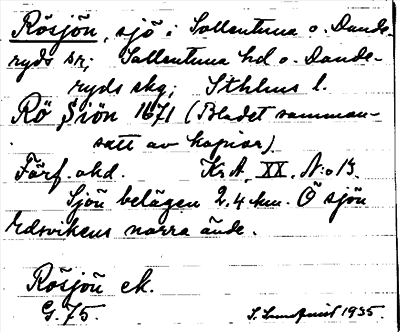 Rösjön, sjö i Sollentuna o. Dande-
ryds sr; Sollentuna hd o. Dande-
ryds skg; Sthlms l.
Rö Siön 1671 (Bladet samman-
satt av kopior)
Förf. okd. Kr. A. XX. N:o 13.
Sjön belägen 2,4 km. Ö sjön
Edsvikens norra ände.
Rösjön ek.
G. 75. S. Lundquist 1935.